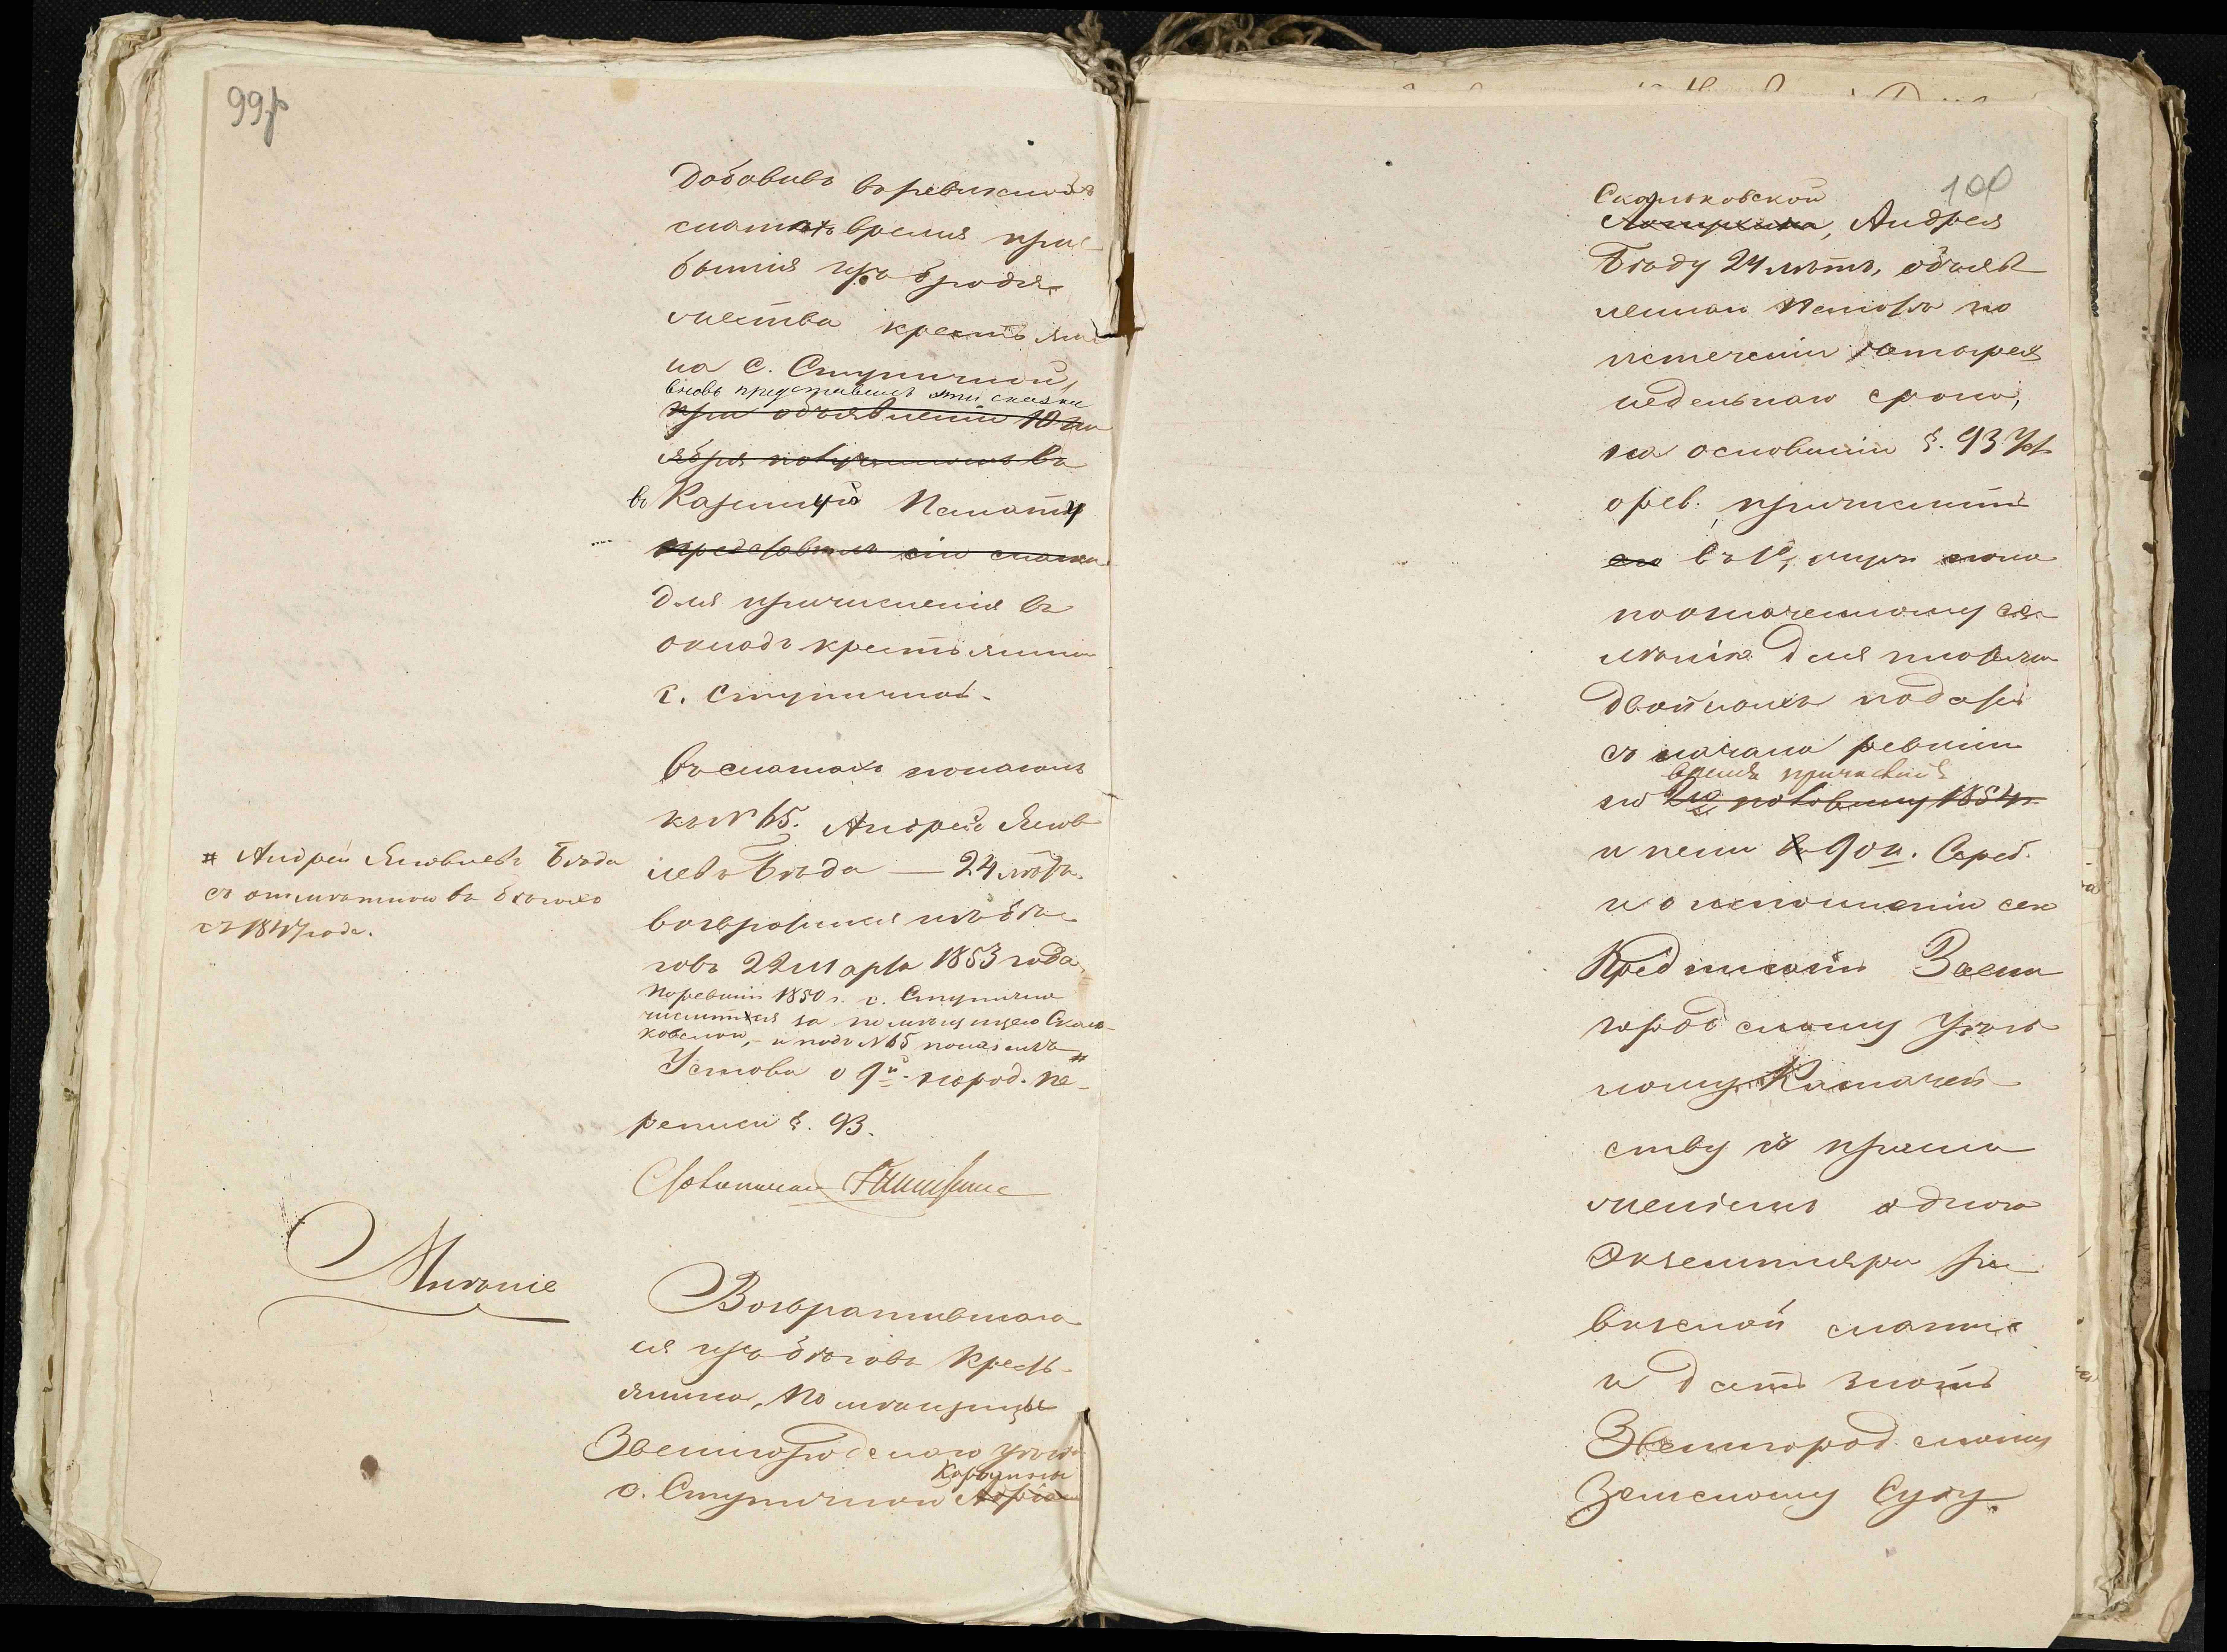 99р
добавивъ въ ревизской
сказкѣ время при-
бытія изъ бродя-
жества крестьяни-
на с. Ступичной,
вновь представилъ эти сказки
при объявленіи 10 но
ября полученномъ въ
въ Казенную Палату
представилъ сіи сказки
для причисленія въ
окладъ крестьянина
с. Ступичной.
Въ сказкахъ показанъ
къ № 65. Андрей Яков
левъ Бѣда — 24 лѣтъ
возвратился изъ бѣ-
говъ 22 марта 1853 года.
По ревизіи 1850 г. с. Ступична
числится за помѣщицею Скаль-
ковской, и подъ № 65 показанъ #
# Андрей Яковлевъ Бѣда
съ отмѣткою въ бѣгахъ
съ 1847 года.
Устава о 9й народ. пе-
реписи §. 93.
Столоначал
Мнѣніе
Возвратившаго
ся изъ бѣговъ крест-
янина, помѣщицы
Звенигородскаго уѣзда
с. Ступичной
100
Скальковской
Андрея
Бѣду 24 лѣтъ, объяв
леннаго Палатѣ по
истеченіи четырех
недѣльнаго срока,
на основаніи §. 93 Уст
о рев. причислить
его въ
поозначенному се
ленію для платежа
двойныхъ податей
съ начала ревизіи
время причисленія
по 2ю половину 1854 г.
и пени 90 к. Сереб.
и о исполненіи сего
Предписать Звени
городскому Уѣзд
ному Казначей
ству съ прило
женіемъ одного
экземпляра ре
визской сказки
и дать знать
Звенигородскому
Земскому Суду.